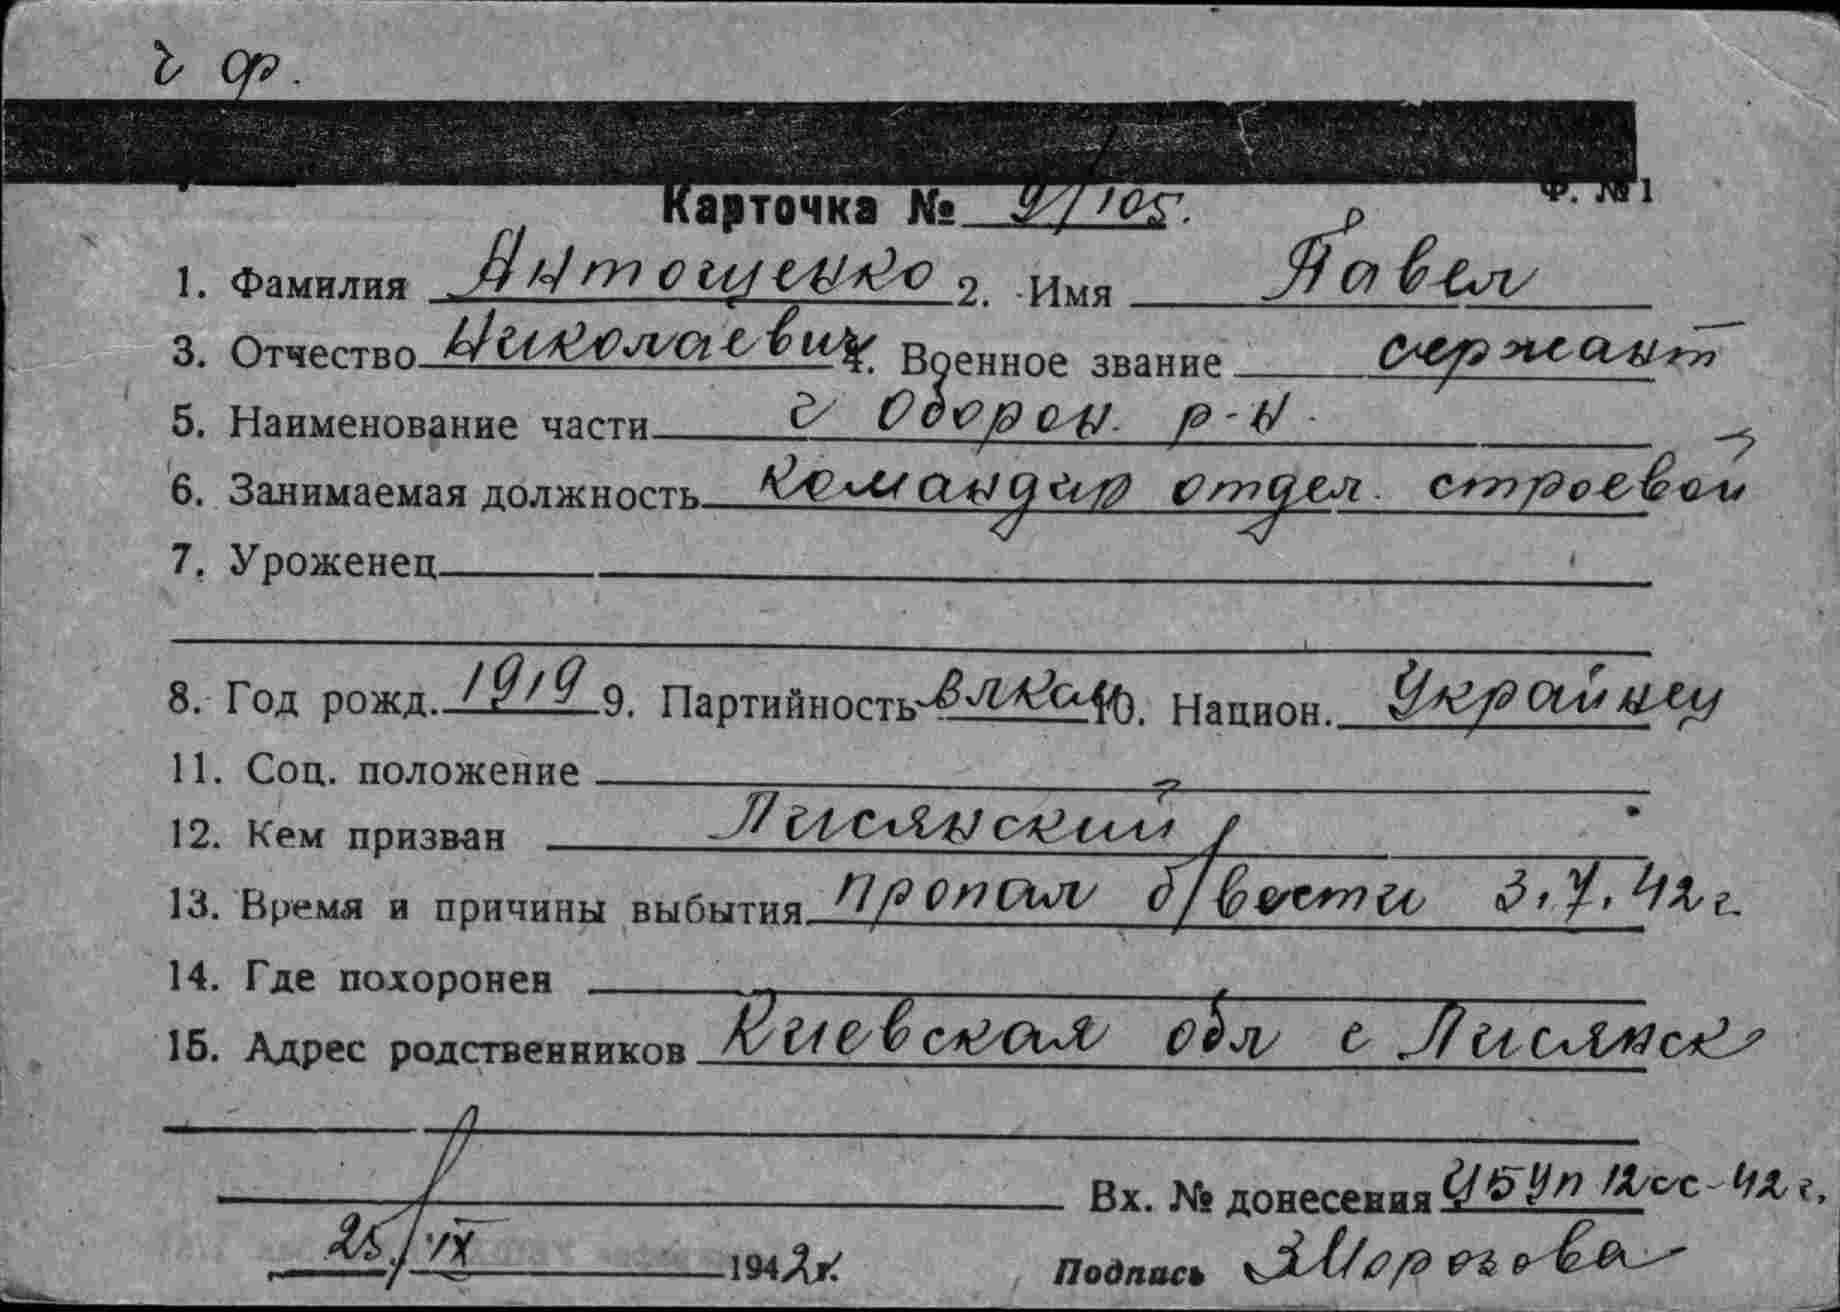 ч ф.
Ф. №1
Карточка № 9/105.
1. Фамилия Антощенко 2. Имя Павел
3. Отчество Николаевич 4. Военное звание сержант
5. Наименование части ч Оборон. р-н.
6. Занимаемая должность командир отдел. строевой
7. Уроженец
8. Год рожд. 1919 9. Партийность влксм 10. Национ. Украйнец
11. Соц. положение
12. Кем призван Лисянский
13. Время и причины выбытия пропал б/вести 3.7.42г.
14. Где похоронен
15. Адрес родственников Киевская обл с Лисянск
Вх. № донесения УБУп 12сс-42г.
25/IX 1942г. Подпись ЗМорозова